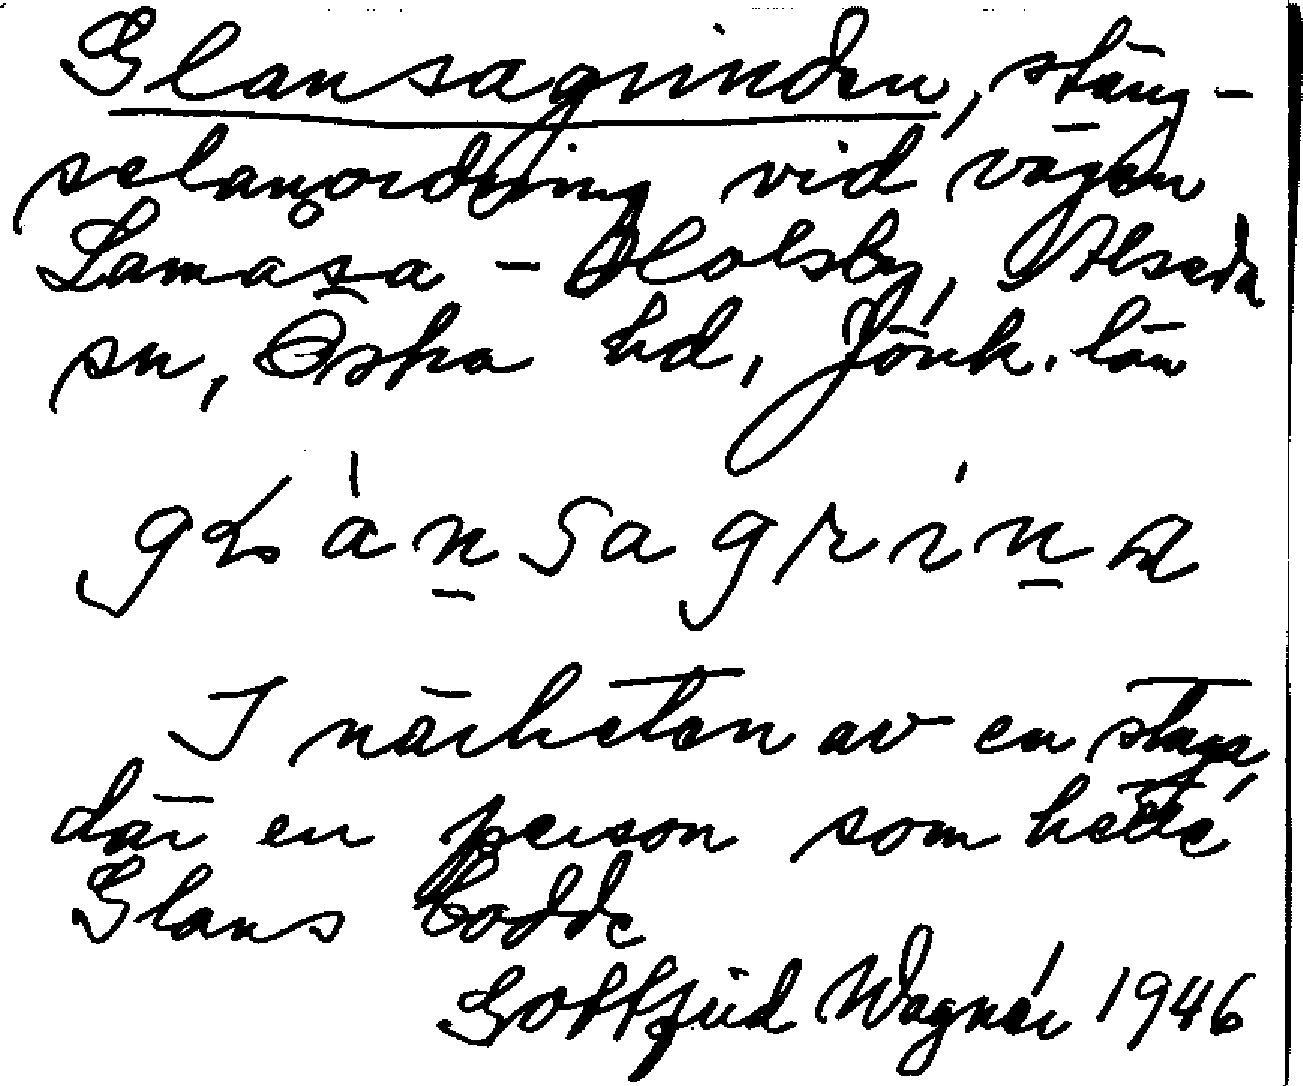 Glansagrinden, stäng-
selanordning vid vägen
Lamåsa - Holsby, Alseda
sn, Östra hd, Jönk. län
glànsagrína
I närheten av en stuga
där en person som hette
Glans bodde
Gottfrid Wagnér 1946